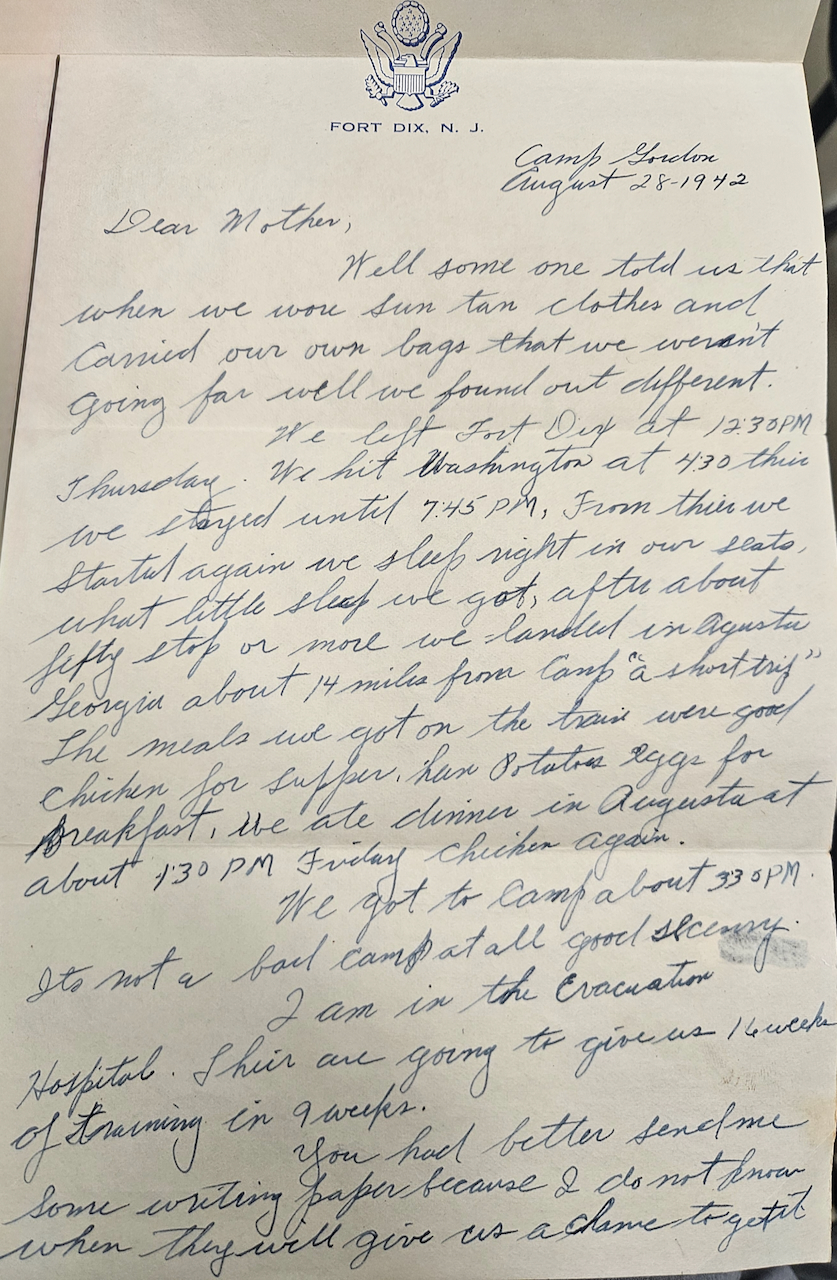 FORT DIX, N. J.
Camp Gordon
August 28-1942
Dear Mother,
Well some one told us that
when we wore sun tan clothes and
carried our own bags that we weren't
going far well we found out different.
We left Fort Dix at 12:30PM
Thursday. We hit Washington at 430 thier
we stayed until 7:45 PM, From thier we
started again we sleep right in our seats,
what little sleep we got, after about
fifty stop or more we landed in Agusta
Georgia about 14 miles from Camp "a short trip"
The meals we got on the train were good
chicken for supper, ham Potatoes eggs for
Breakfast, We ate dinner in Augusta at
about 1:30 PM Friday chicken again.
We got to Camp about 330PM.
Its not a bad camp at all good scenery.
I am in the Evacuation
Hospital. Thier are going to give us 16 weeks
of training in 9 weeks.
You had better send me
some writing paper because I do not know
when they will give us a chance to get it